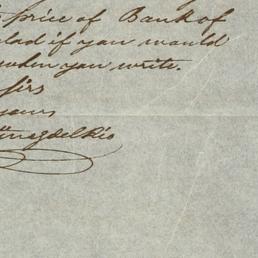 price of Bank of
glad if you would
when you write.
Sirs
yours